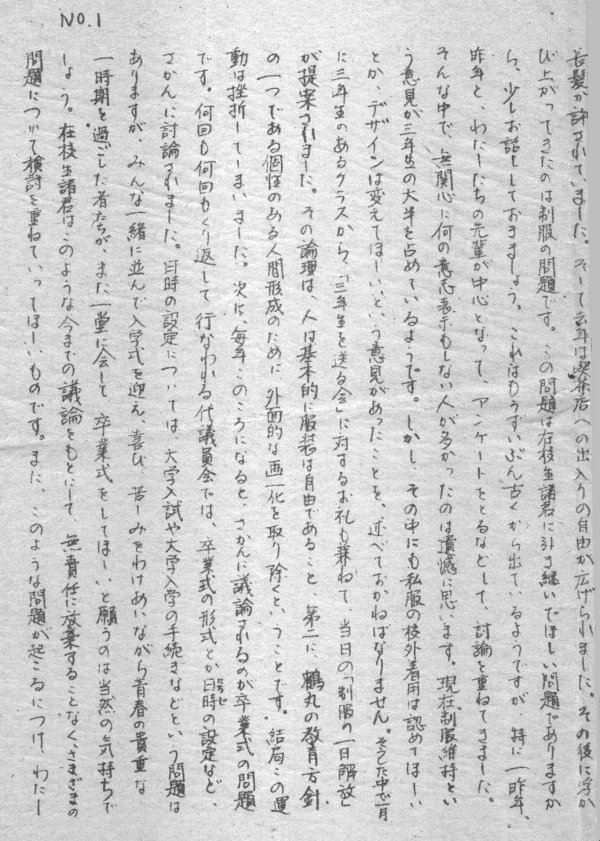 NO.1
長髪が許されていました。そして去年は喫茶店への出入りの自由が広げられました。その後に浮か
び上がってきたのは制服の問題です。この問題は在校生諸君に引き継いでほしい問題でありますか
ら、少しお話ししておきましょう。これはもうずいぶん古くから出ているようですが、特に一昨年、
昨年と、わたしたちの先輩が中心となって、アンケートをとるなどして、討論を重ねてきました。
そんな中で、無関心に何の意志表示もしない人が多かったのは遺憾に思います。現在制服維持とい
う意見が三年生の大半を占めているようです。しかし、その中にも私服の校外着用は認めてほしい
とか、デザインは変えてほしいという意見があったことを、述べておかねばなりません。そした中で一月
に三年生のあるクラスから、「三年生を送る会」に対するお礼も兼ねて、当日の「制服の一日解放」
が提案されました。その論理は、人は基本的に服装は自由であること、第二に、鶴丸の教育方針
の一つである個性のある人間形成のために外面的な画一化を取り除くということです。結局この運
動は挫折してしまいました。次に、毎年このころになると、さかんに議論されるのが卒業式の問題
です。何回も何回もくり返して行なわれる代議員会では、卒業式の形式とか日時の設定など、
さかんに討論されました。日時の設定については、大学入試や大学入学の手続きなどという問題は
ありますが、みんな一緒に並んで入学式を迎え、喜び、苦しみをわけあいながら青春の貴重な
一時期を過ごした者たちが、また一堂に会して卒業式をしてほしいと願うのは当然の気持ちで
しょう。在校生諸君はこのような今までの議論をもとにして、無責任に放棄することなくさまざまの
問題について検討を重ねていってほしいものです。また、このような問題が起こるにつけ、わたし